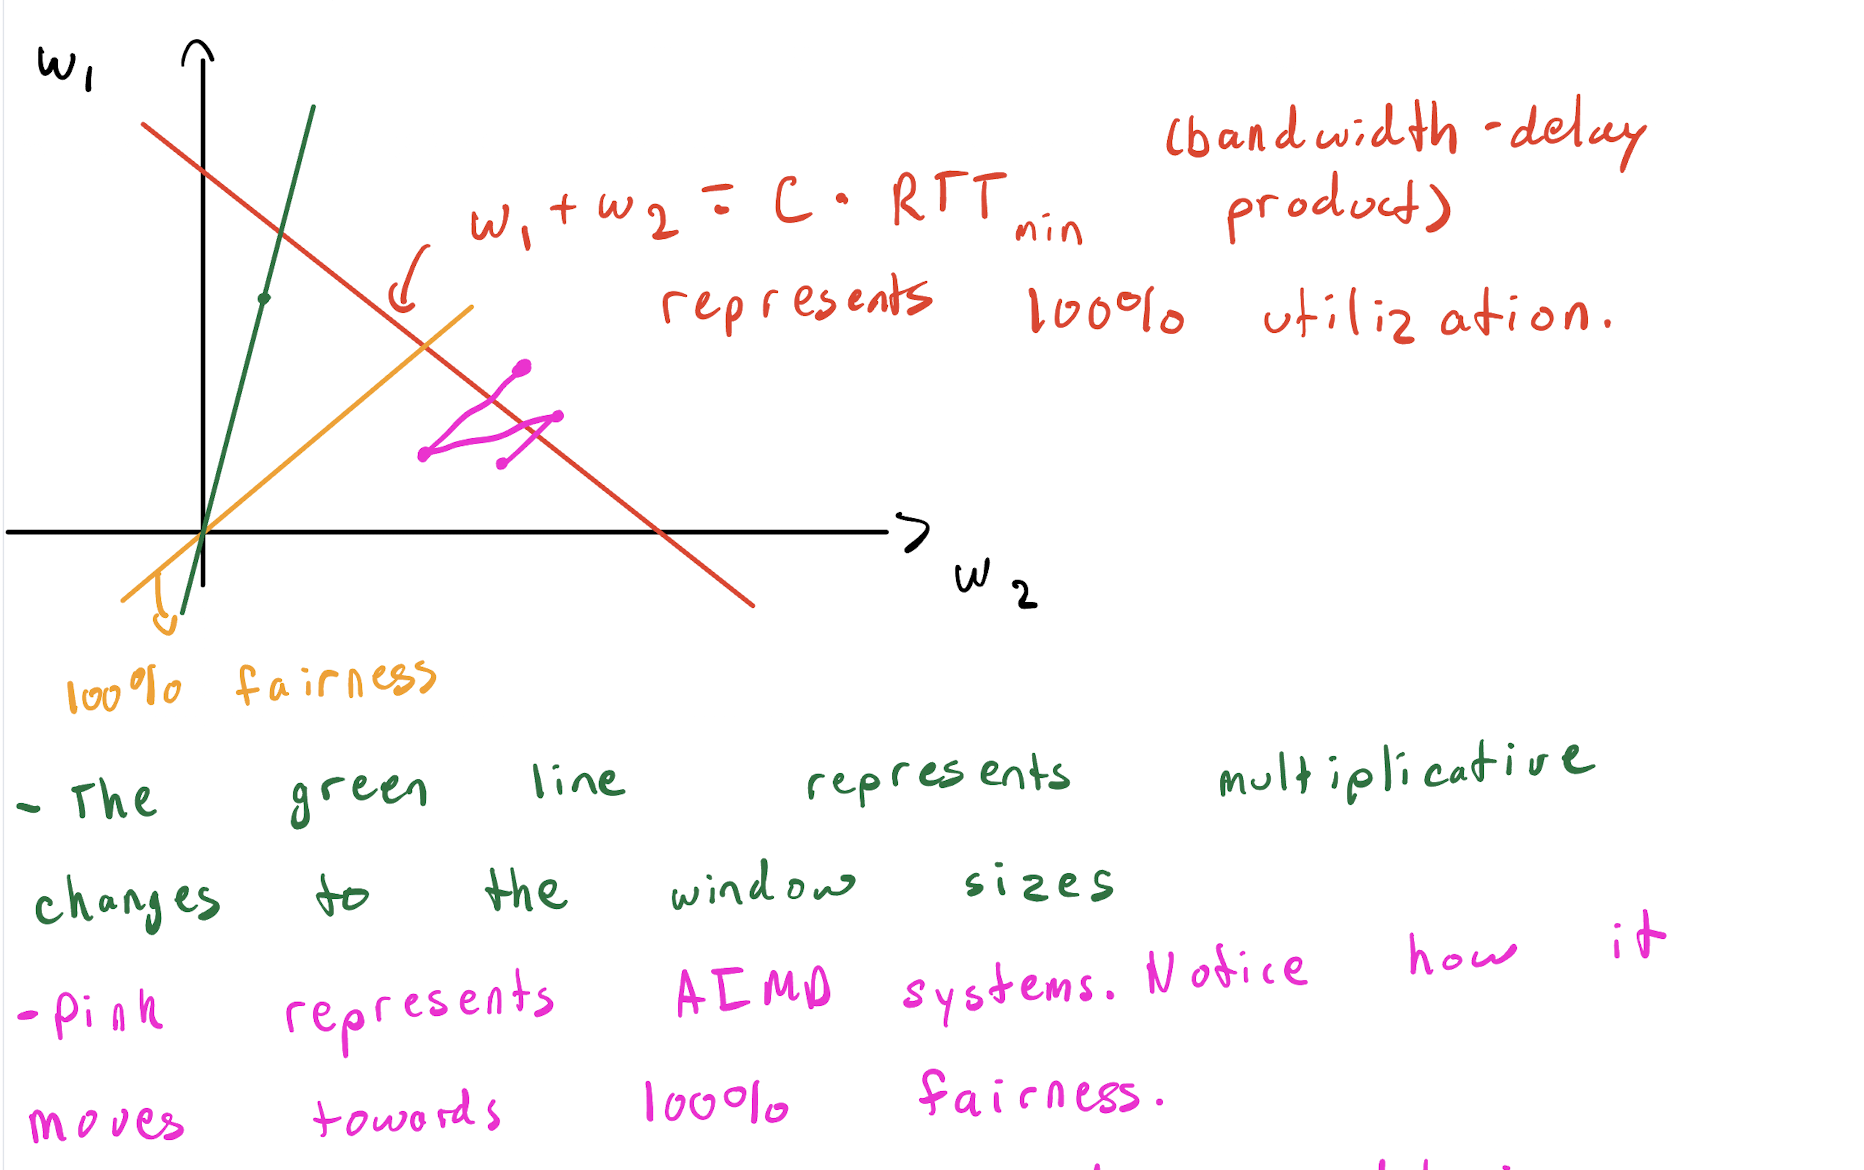 w1
(bandwidth-delay
product)
w1 + w2 = C · RTTmin
represents 100% utilization.
w2
100% fairness
- The green line represents multiplicative
changes to the window sizes
- Pink represents AIMD systems. Notice how it
moves towards 100% fairness.